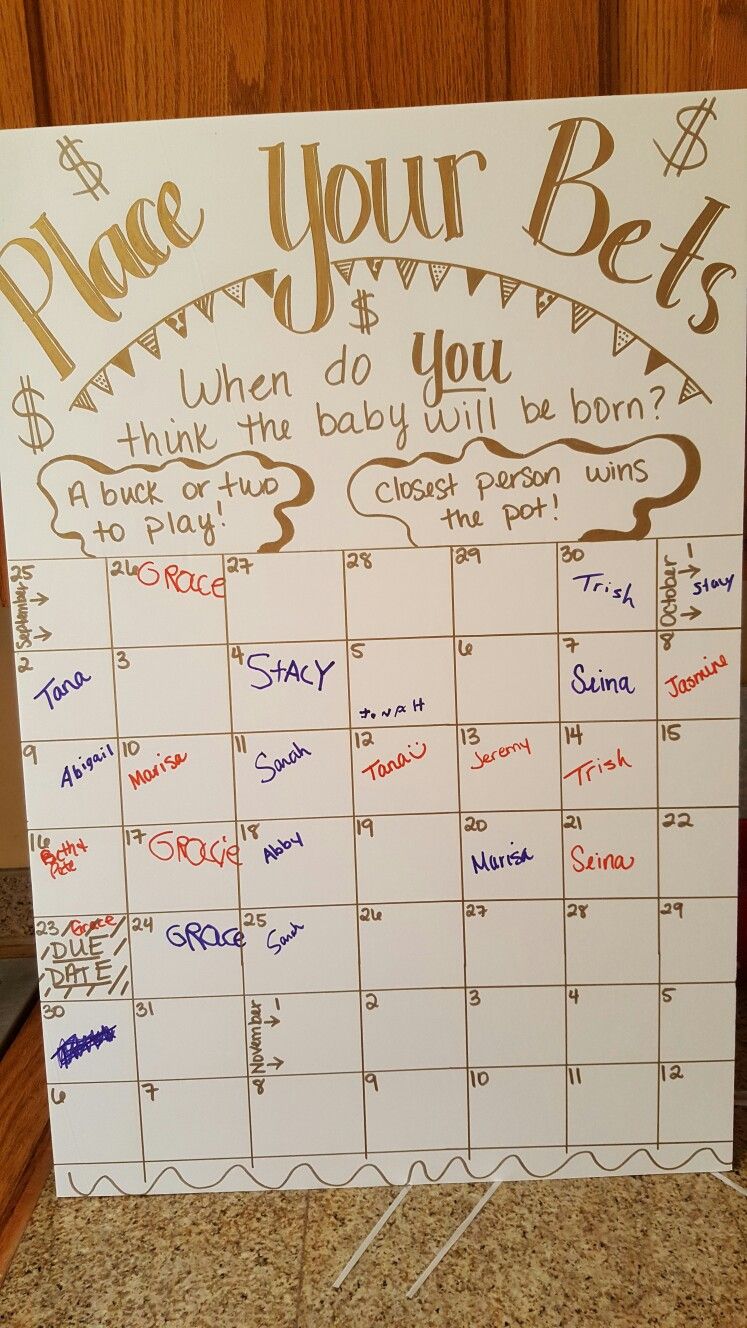 $ $
Place Your Bets
$
$
When do you
think the baby will be born?
A buck or two
to play!
closest person wins
the pot!
25 26 GRACE 27 28 29 30 Trish 1 Stacy
September October
2 Tana 3 4 STACY 5 6 7 Seina 8 Jasmine
9 Abigail 10 Marisa 11 Sarah 12 Tana 13 Jeremy 14 Trish 15
16 17 GRACIE 18 Abby 19 20 Marisa 21 Seina 22
23 Grace 24 GRACE 25 Sarah 26 27 28 29
DUE
DATE
30 31 November 1 2 3 4 5
6 7 8 9 10 11 12